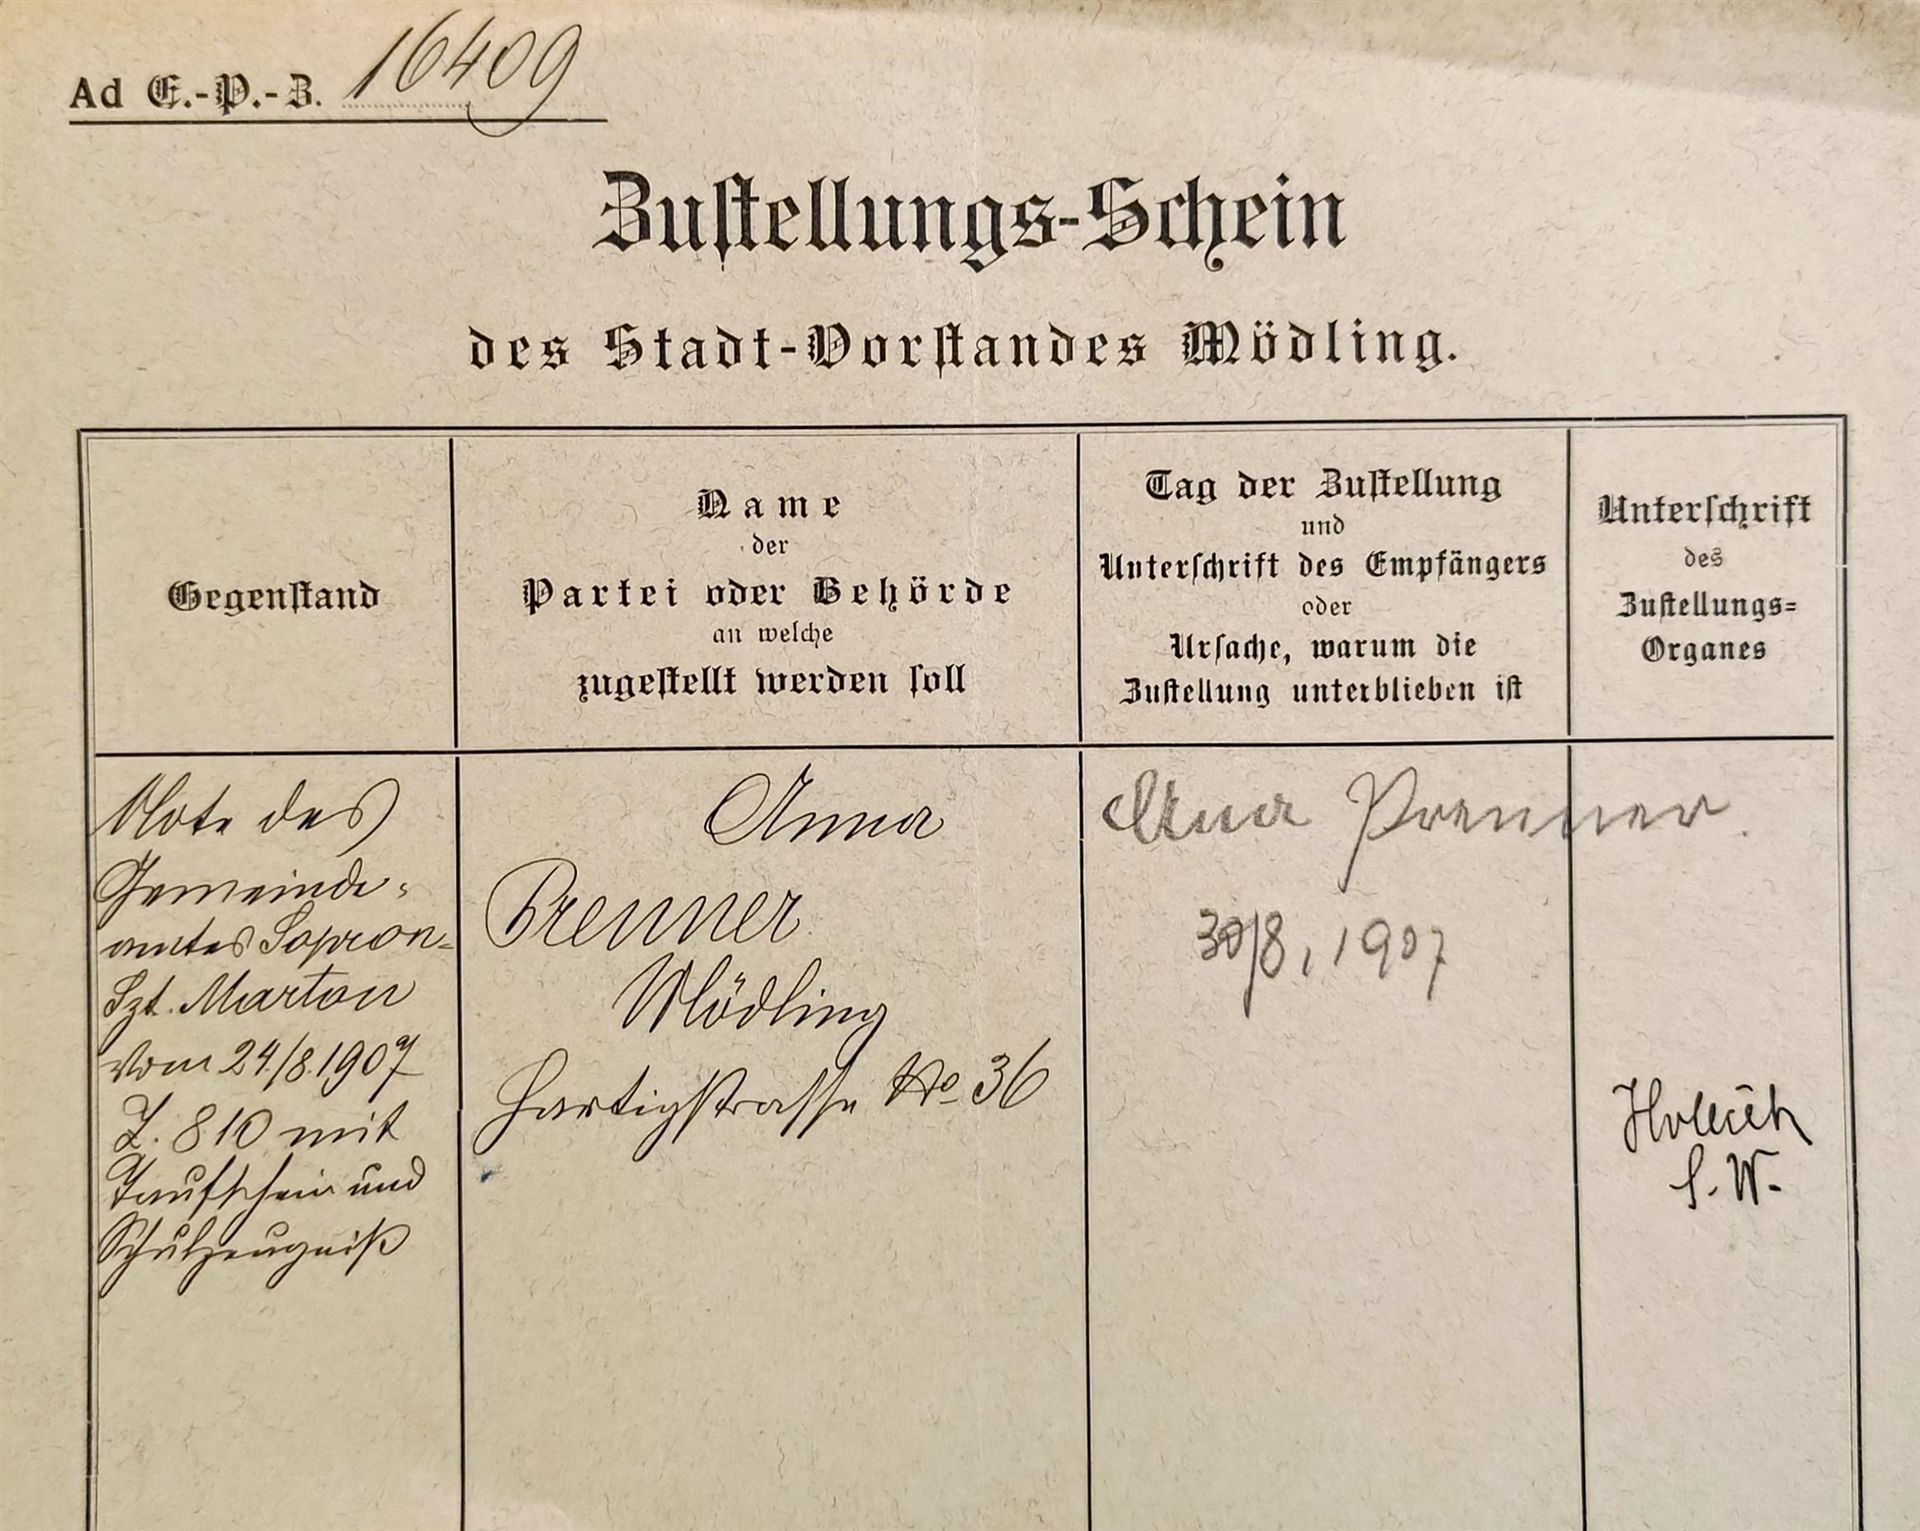 Ad E.-P.-Z. 16409
Zustellungs-Schein
des Stadt-Vorstandes Mödling.
Gegenstand
Name
der
Partei oder Behörde
an welche
zugestellt werden soll
Tag der Zustellung
und
Unterschrift des Empfängers
oder
Ursache, warum die
Zustellung unterblieben ist
Unterschrift
des
Zustellungs-
Organes
Note des
Gemeinde-
amtes Sopron-
Szt. Marton
vom 24./8.1907
Z. 810 mit
Taufschein und
Schulzeugniß
Anna
Prenner
Mödling
Hartigstrasse No 36
Anna Prenner.
30/8, 1907
S. W.